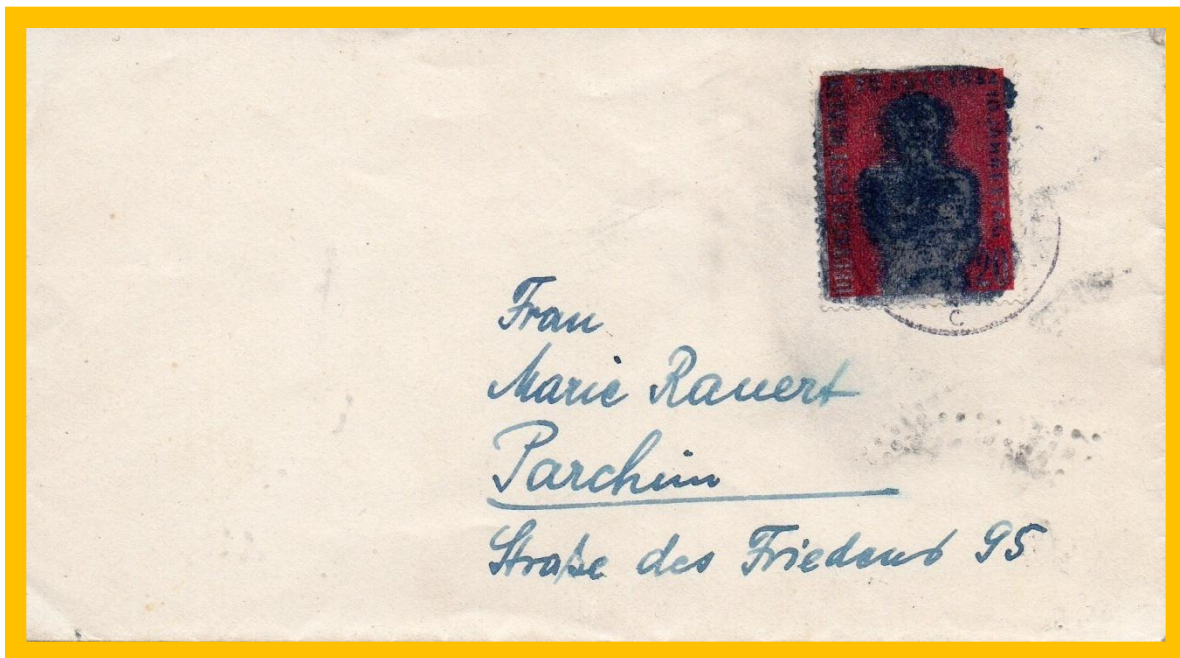 C
Frau
Marie Rauert
Parchim
Straße des Friedens 95